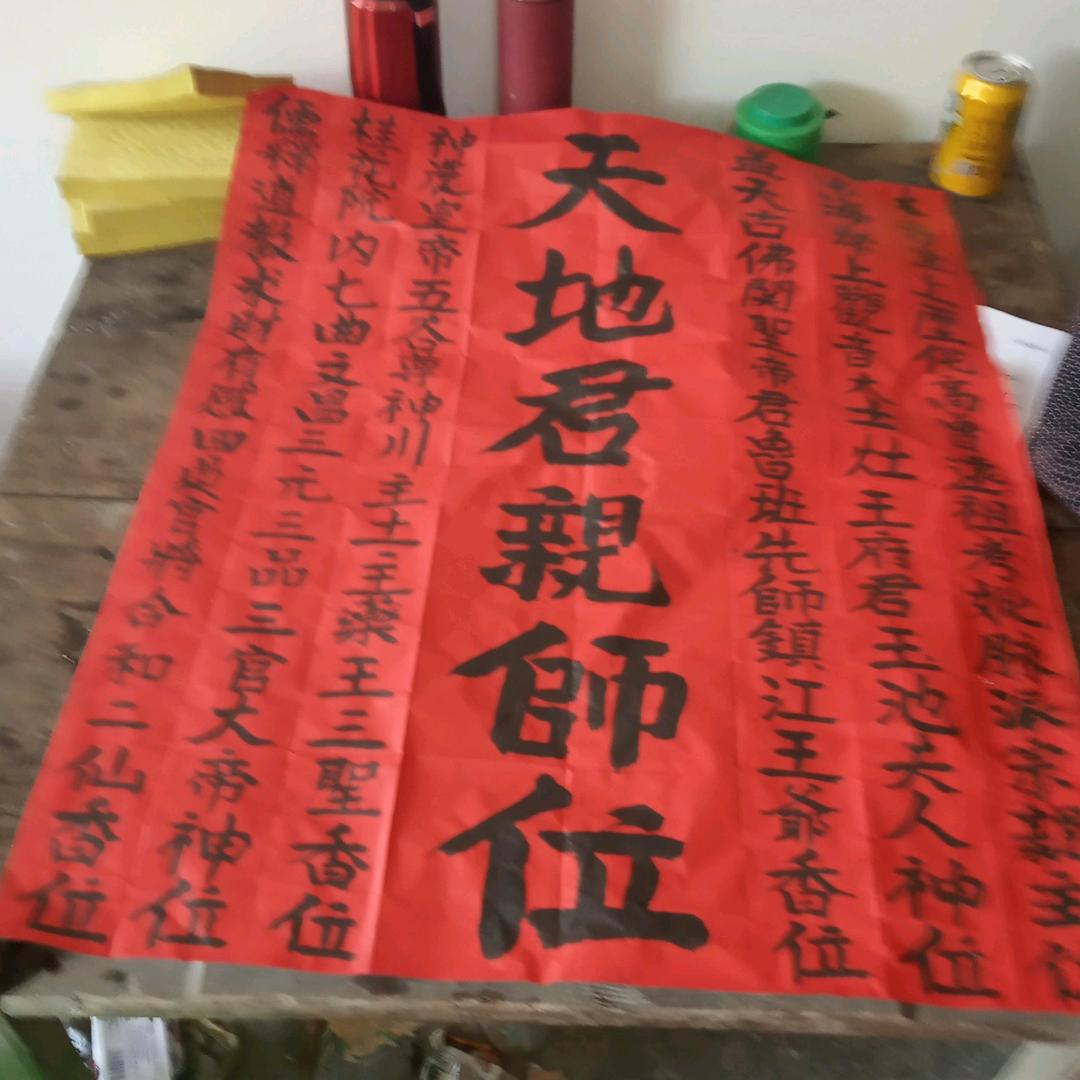 堂上歷代高曾遠祖考妣脉派宗親主位
海岸上觀音大士灶王府君王池夫人神位
蓋天古佛関聖帝君魯班先師鎮江王爺香位
天地君親師位
神農皇帝五谷尊神川主土主藥王三聖香位
桂花院内七曲文昌三元三品三官大帝神位
儒釋道教求財有感四員官將合和二仙香位